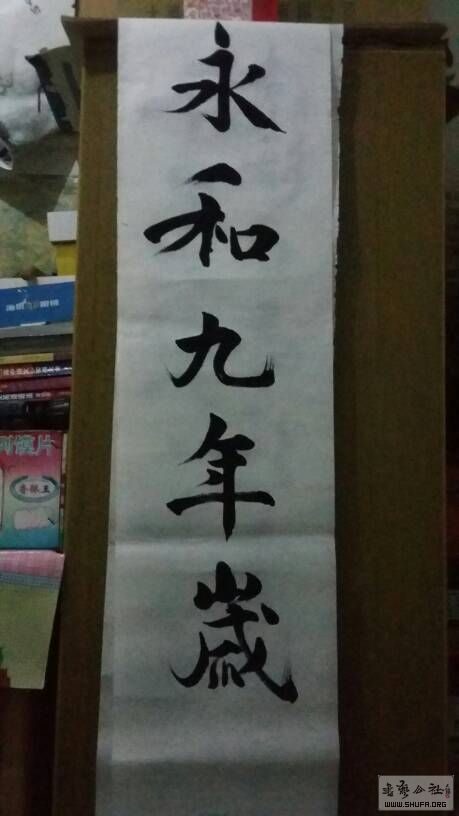 永和九年歲
香酥王
书法公社
WWW.SHUFA.ORG